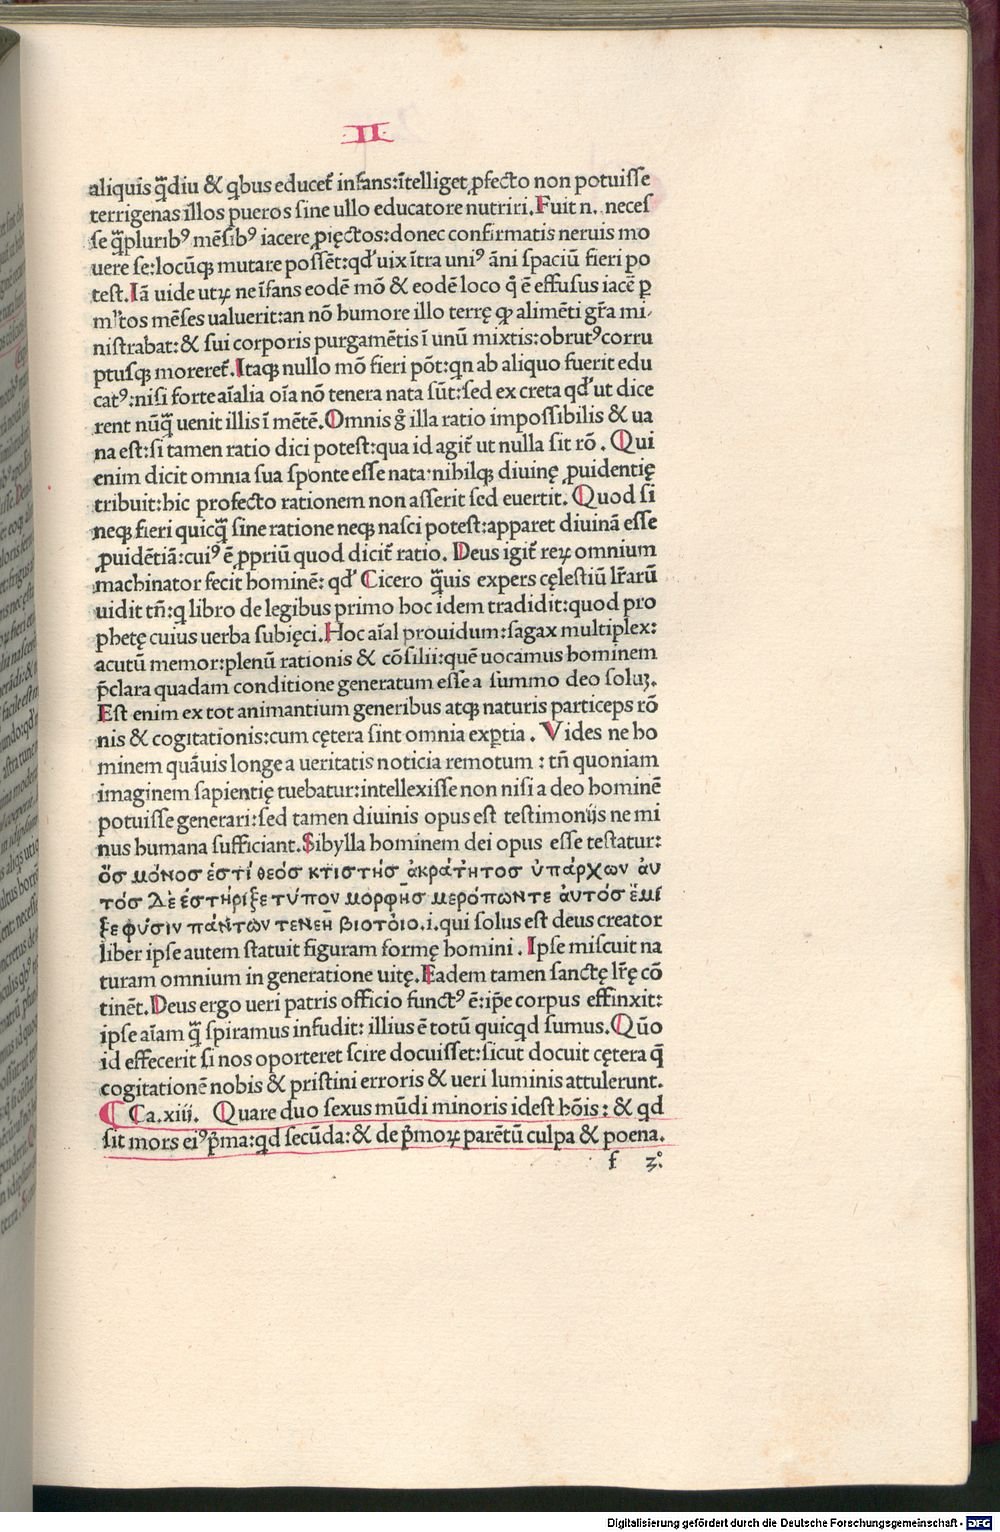 II
aliquis q̃diu & qbus educet᷑ infans:ĩtelliget ꝓfecto non potuisse
terrigenas illos pueros sine ullo educatore nutriri.Fuit n. neces
se q̃pluribꝰ mẽsibꝰ iacere ꝓięctos:donec confirmatis neruis mo
uere se:locũqꝫ mutare possẽt:qd' uix ĩtra uniꝰ ãni spaciũ fieri po
test.Iã uide utꝝ ne ĩfans eodẽ mõ & eodẽ loco q̊ ẽ effusus iacẽ ꝑ
ml'tos mẽses ualuerit:an nõ humore illo terrę ꝙ alimẽti gr̃a mi/
nistrabat:& sui corporis purgamẽtis ĩ unũ mixtis:obrutꝰ corru
ptusqꝫ moreret᷑.Itaqꝫ nullo mõ fieri põt:qn ab aliquo fuerit edu
catꝰ:nisi forte aĩalia oĩa nõ tenera nata sũt:sed ex creta qd' ut dice
rent nũq̃ uenit illis ĩ mẽtẽ.Omnis g̊ illa ratio impossibilis & ua
na est:si tamen ratio dici potest:qua id agit᷑ ut nulla sit rõ. Qui
enim dicit omnia sua sponte esse nata:nihilqꝫ diuinę ꝓuidentię
tribuit:hic profecto rationem non asserit sed euertit. Quod si
neqꝫ fieri quicq̃ sine ratione neqꝫ nasci potest:apparet diuinã esse
ꝓuidẽtiã:cuiꝰ ẽ ꝓpriũ quod dicit᷑ ratio. Deus igit᷑ reꝝ omnium
machinator fecit hominẽ: qd' Cicero q̃uis expers cęlestiũ lr̃arũ
uidit tñ:q libro de legibus primo hoc idem tradidit:quod pro
phetę cuius uerba subięci.Hoc aĩal prouidum:sagax multiplex:
acutũ memor:plenũ rationis & cõsilii:quẽ uocamus hominem
p̃clara quadam conditione generatum esse a summo deo soluꝫ.
Est enim ex tot animantium generibus atqꝫ naturis particeps rõ
nis & cogitationis:cum cętera sint omnia exꝑtia. Vides ne ho
minem quãuis longe a ueritatis noticia remotum : tñ quoniam
imaginem sapientię tuebatur:intellexisse non nisi a deo hominẽ
potuisse generari:sed tamen diuinis opus est testimoniis ne mi
nus humana sufficiant.Sibylla hominem dei opus esse testatur:
ὅσ μόνοσ ἐστί θεόσ κτιστήσ ἀκράτητοσ ὑπάρχων ἀυ
τόσ Δὲ ἐστήριξε τύπον μορφῆσ μερόπωντε ἀυτόσ ἔμί
ξε φύσιν πάντων τενεῆ βιοτόιο.i.qui solus est deus creator
liber ipse autem statuit figuram formę homini. Ipse miscuit na
turam omnium in generatione uitę.Eadem tamen sanctę lr̃ę cõ
tinẽt.Deus ergo ueri patris officio functꝰ ẽ:ip̃e corpus effinxit:
ipse aĩam q̃ spiramus infudit: illius ẽ totũ quicqd sumus.Qũo
id effecerit si nos oporteret scire docuisset:sicut docuit cętera q̃
cogitationẽ nobis & pristini erroris & ueri luminis attulerunt.
⸿ Ca.xiii. Quare duo sexus mũdi minoris idest hõis: & qd
sit mors eiꝰ p̃ma:qd secũda:& de p̃moꝝ parẽtũ culpa & poena.
f 3
Digitalisierung gefördert durch die Deutsche Forschungsgemeinschaft - DFG